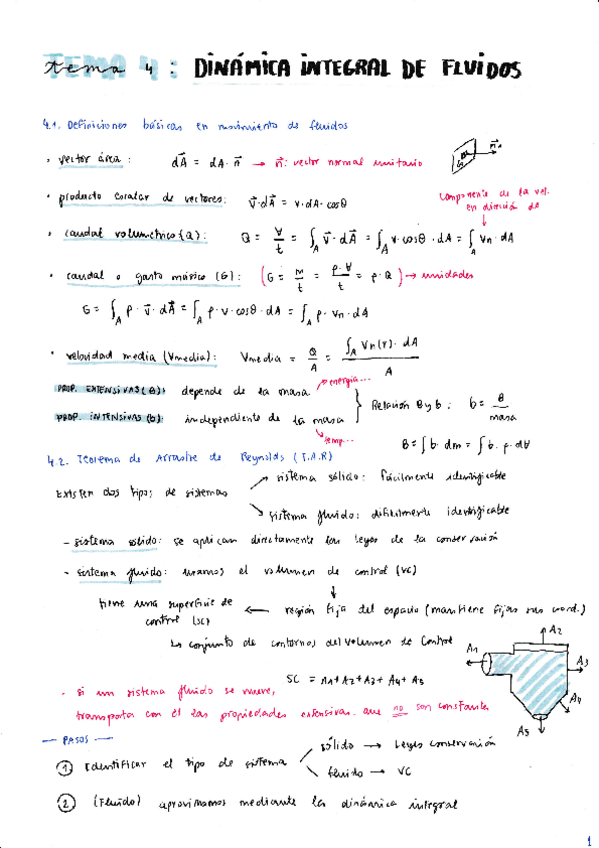 tema 4: DINÁMICA INTEGRAL DE FLUIDOS
4.1. Definiciones básicas en movimiento de fluidos
· vector área: dA⃗ = dA · n⃗ → n⃗: vector normal unitario
· producto escalar de vectores: v⃗·dA⃗ = v·dA·cosθ
componente de la vel.
en dirección dA
· caudal volumétrico (Q): Q = V/t = ∫_A v⃗·dA⃗ = ∫_A v·cosθ·dA = ∫_A Vn·dA
· caudal o gasto másico (G): (G = m/t = ρ·V/t = ρ·Q) → unidades
G = ∫_A ρ·v⃗·dA⃗ = ∫_A ρ·v·cosθ·dA = ∫_A ρ·Vn·dA
· velocidad media (Vmedia): Vmedia = Q/A = ∫_A Vn(r)·dA / A
PROP. EXTENSIVAS (B): depende de la masa → energía...
PROP. INTENSIVAS (b): independiente de la masa → temp...
Relación B y b: b = B/masa
B = ∫b·dm = ∫b·ρ·dV
4.2. Teorema de Arrastre de Reynolds (T.A.R)
Existen dos tipos de sistemas
sistema sólido: fácilmente identificable
sistema fluido: difícilmente identificable
- sistema sólido: se aplican directamente las leyes de la conservación
- sistema fluido: usamos el volumen de control (VC)
región fija del espacio (mantiene fijas sus coord.)
tiene una superficie de
control (SC)
↳ conjunto de contornos del volumen de control
SC = A1+A2+A3+A4+A5
A1
A2
A3
A4
A5
· si un sistema fluido se mueve,
transporta con él las propiedades extensivas que no son constantes
— PASOS —
① Identificar el tipo de sistema
sólido → leyes conservación
fluido → VC
② (Fluido) aproximamos mediante la dinámica integral
1